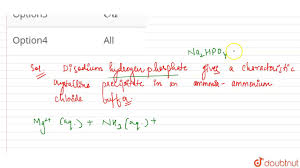 Option4 All
Na2HPO4
Sol. Disodium hydrogen phosphate gives a characteristic
crystalline precipitate in an ammonia-ammonium
chloride buffer
Mg++ (aq.) + NH3 (aq.) +
doubtnut